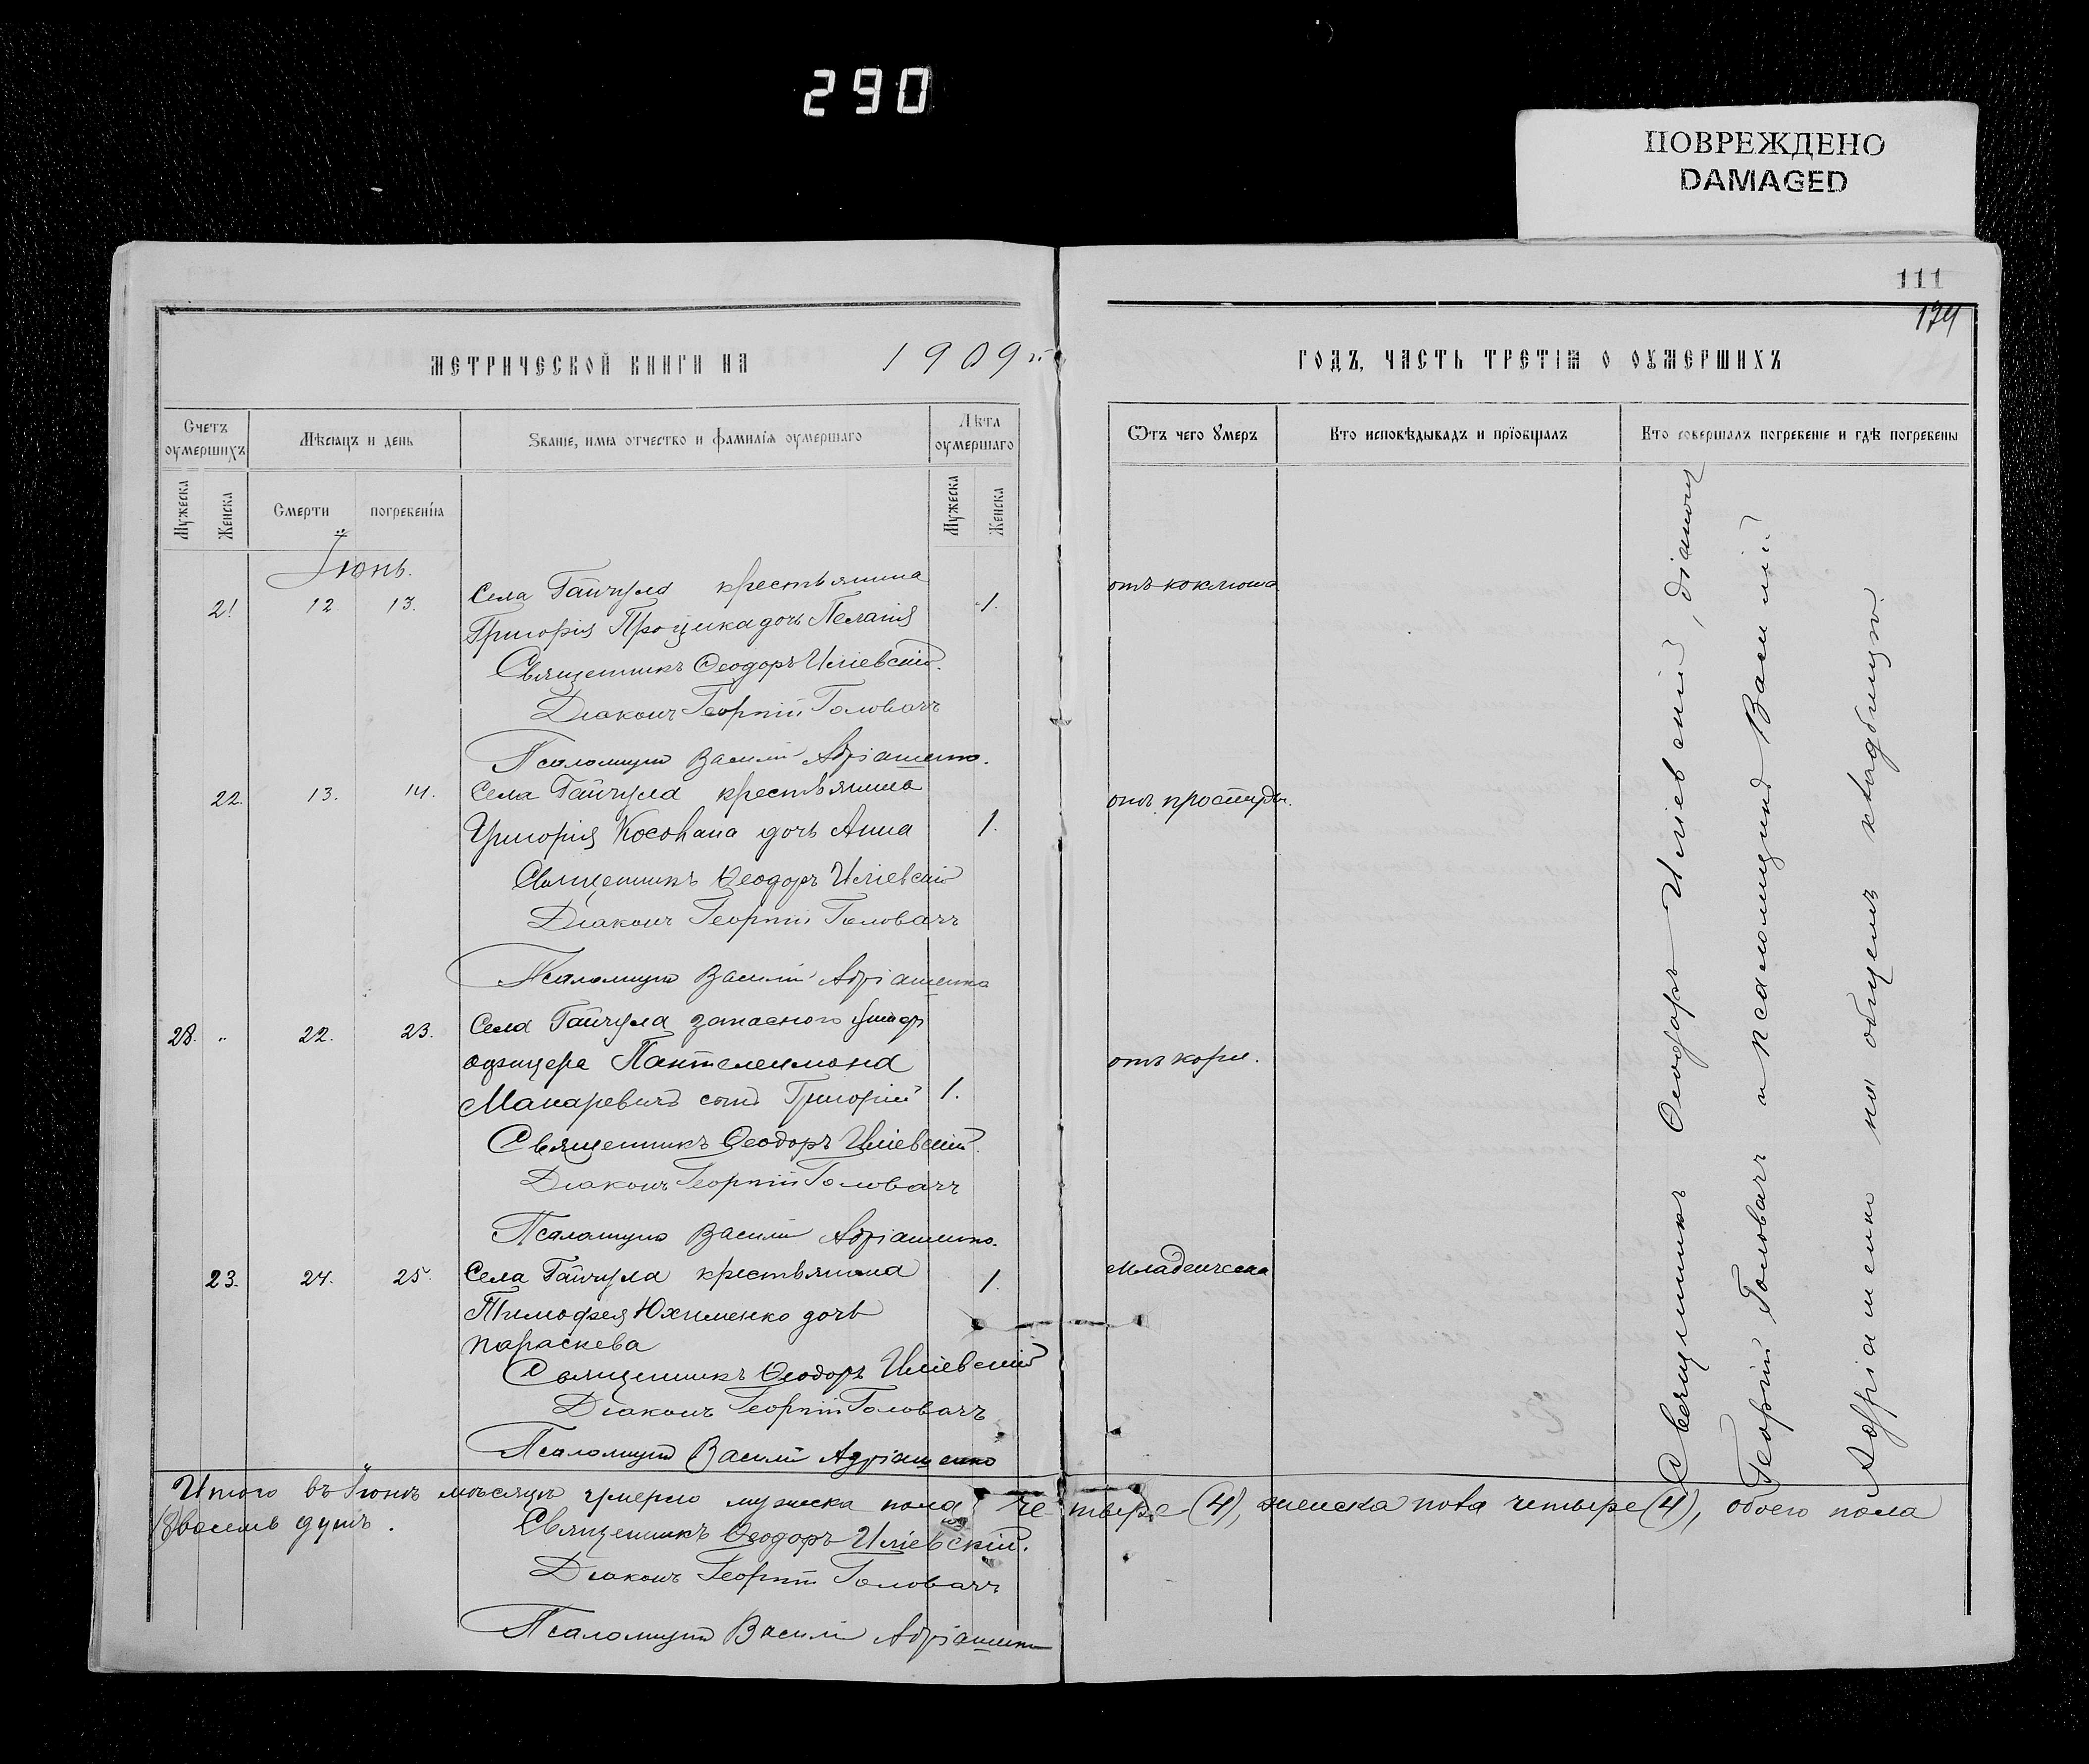 290
ПОВРЕЖДЕНО
DAMAGED
111
174
МЕТРИЧЕСКОЙ КНИГИ НА 1909й
ГОДЪ, ЧАСТЬ ТРЕТІѦ О ОУМЕРШИХЪ
Счетъ оумершихъ
Мѣсяцъ и день
Званіе, имя отчество и фамилія оумершаго
Лѣта оумершаго
Ѿтъ чего Ꙋмеръ
Кто исповѣдывадъ и пріобщалъ
Кто совершалъ погребеніе и гдѣ погребены
Мужеска
Женска
Смерти
погребенія
Мужеска
Женска
Іюнь.
21 12 13. Села Гайчула крестьянина 1. отъ коклюша
Григорія Процика дочь Пелагія
Священникъ Ѳеодоръ Иліевскій.
Діаконъ Георгій Головачъ
Псаломщикъ Василій Адріашенко.
22. 13. 14. Села Гайчула крестьянина отъ простуды.
Григорія Косована дочь Анна 1.
Священникъ Ѳеодоръ Иліевскій
Діаконъ Георгій Головачъ
Псаломщикъ Василій Адріашенко
28. " 22. 23. Села Гайчула запасного унтеръ
офицера Пантелеимона отъ кори.
Макаревича сынъ Григорій 1.
Священникъ Ѳеодоръ Иліевскій.
Діаконъ Георгій Головачъ
Псаломщикъ Василій Адріашенко.
23. 24. 25. Села Гайчула крестьянина 1. младенческа
Тимофея Юхименко дочь
Параскева
Священникъ Ѳеодоръ Иліевскій
Діаконъ Георгій Головачъ
Псаломщикъ Василій Адріашенко
Священникъ Ѳеодоръ Иліевский, діаконъ
Георгій Головачъ и псаломщикъ Василій
Адріашенко на общемъ кладбищѣ.
Итого въ Іюнѣ мѣсяцѣ умерло мужеска пола четыре (4), женска пола четыре (4), обоего пола
(8) восемь душъ.
Священникъ Ѳеодоръ Иліевскій.
Діаконъ Георгій Головачъ
Псаломщикъ Василій Адріашенко